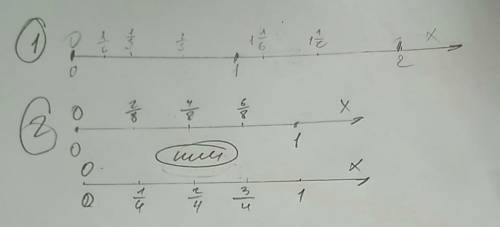 1
0 1/6 1/3 1 1/6 1 1/2 x
0 1 2
2
0 2/8 4/8 6/8 x
0 1
или
0 x
0 1/4 2/4 3/4 1